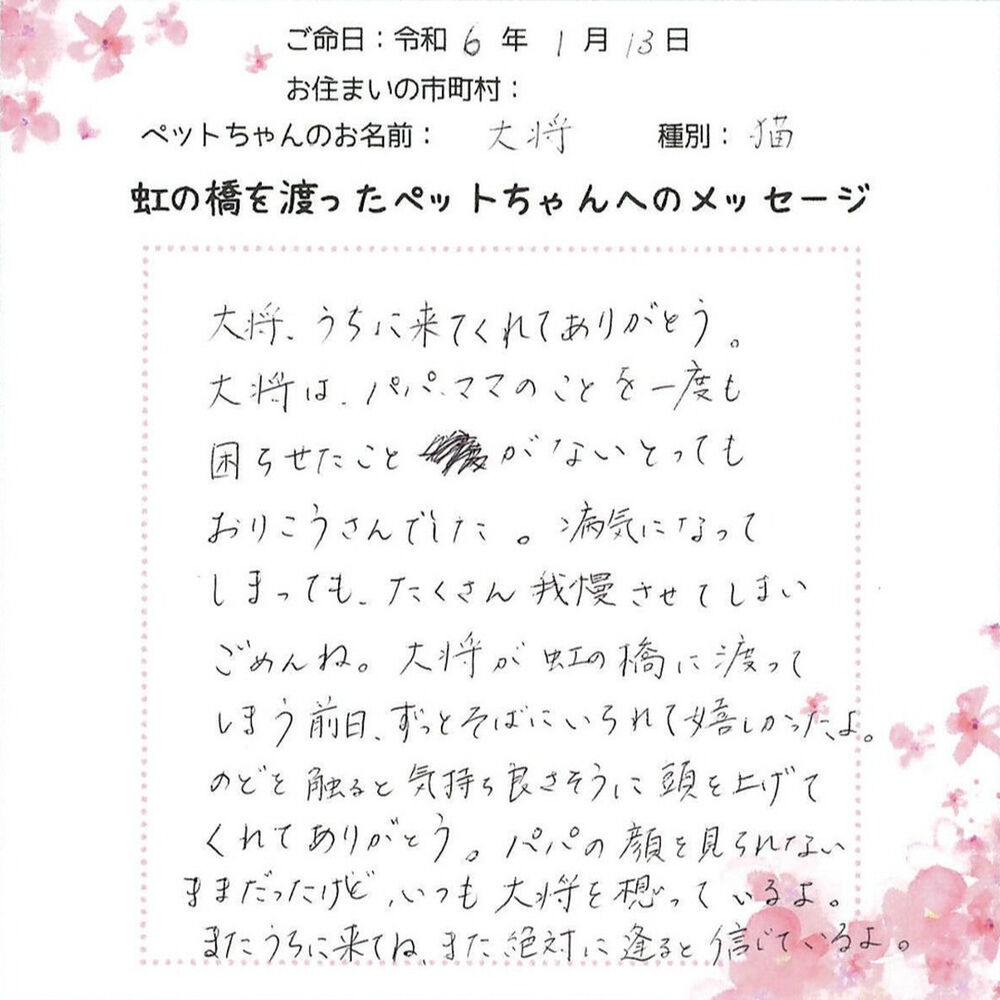 ご命日：令和 6 年 1 月 13 日
お住まいの市町村：
ペットちゃんのお名前： 大将 種別： 猫
虹の橋を渡ったペットちゃんへのメッセージ
大将、うちに来てくれてありがとう。
大将は、パパ、ママのことを一度も
困らせたことがないとっても
おりこうさんでした。病気になって
しまっても、たくさん我慢させてしまい
ごめんね。大将が虹の橋に渡って
しまう前日、ずっとそばにいられて嬉しかったよ。
のどを触ると気持ち良さそうに頭を上げて
くれてありがとう。パパの顔を見られない
ままだったけど、いつも大将を想っているよ。
またうちに来てね、また絶対に逢ると信じているよ。